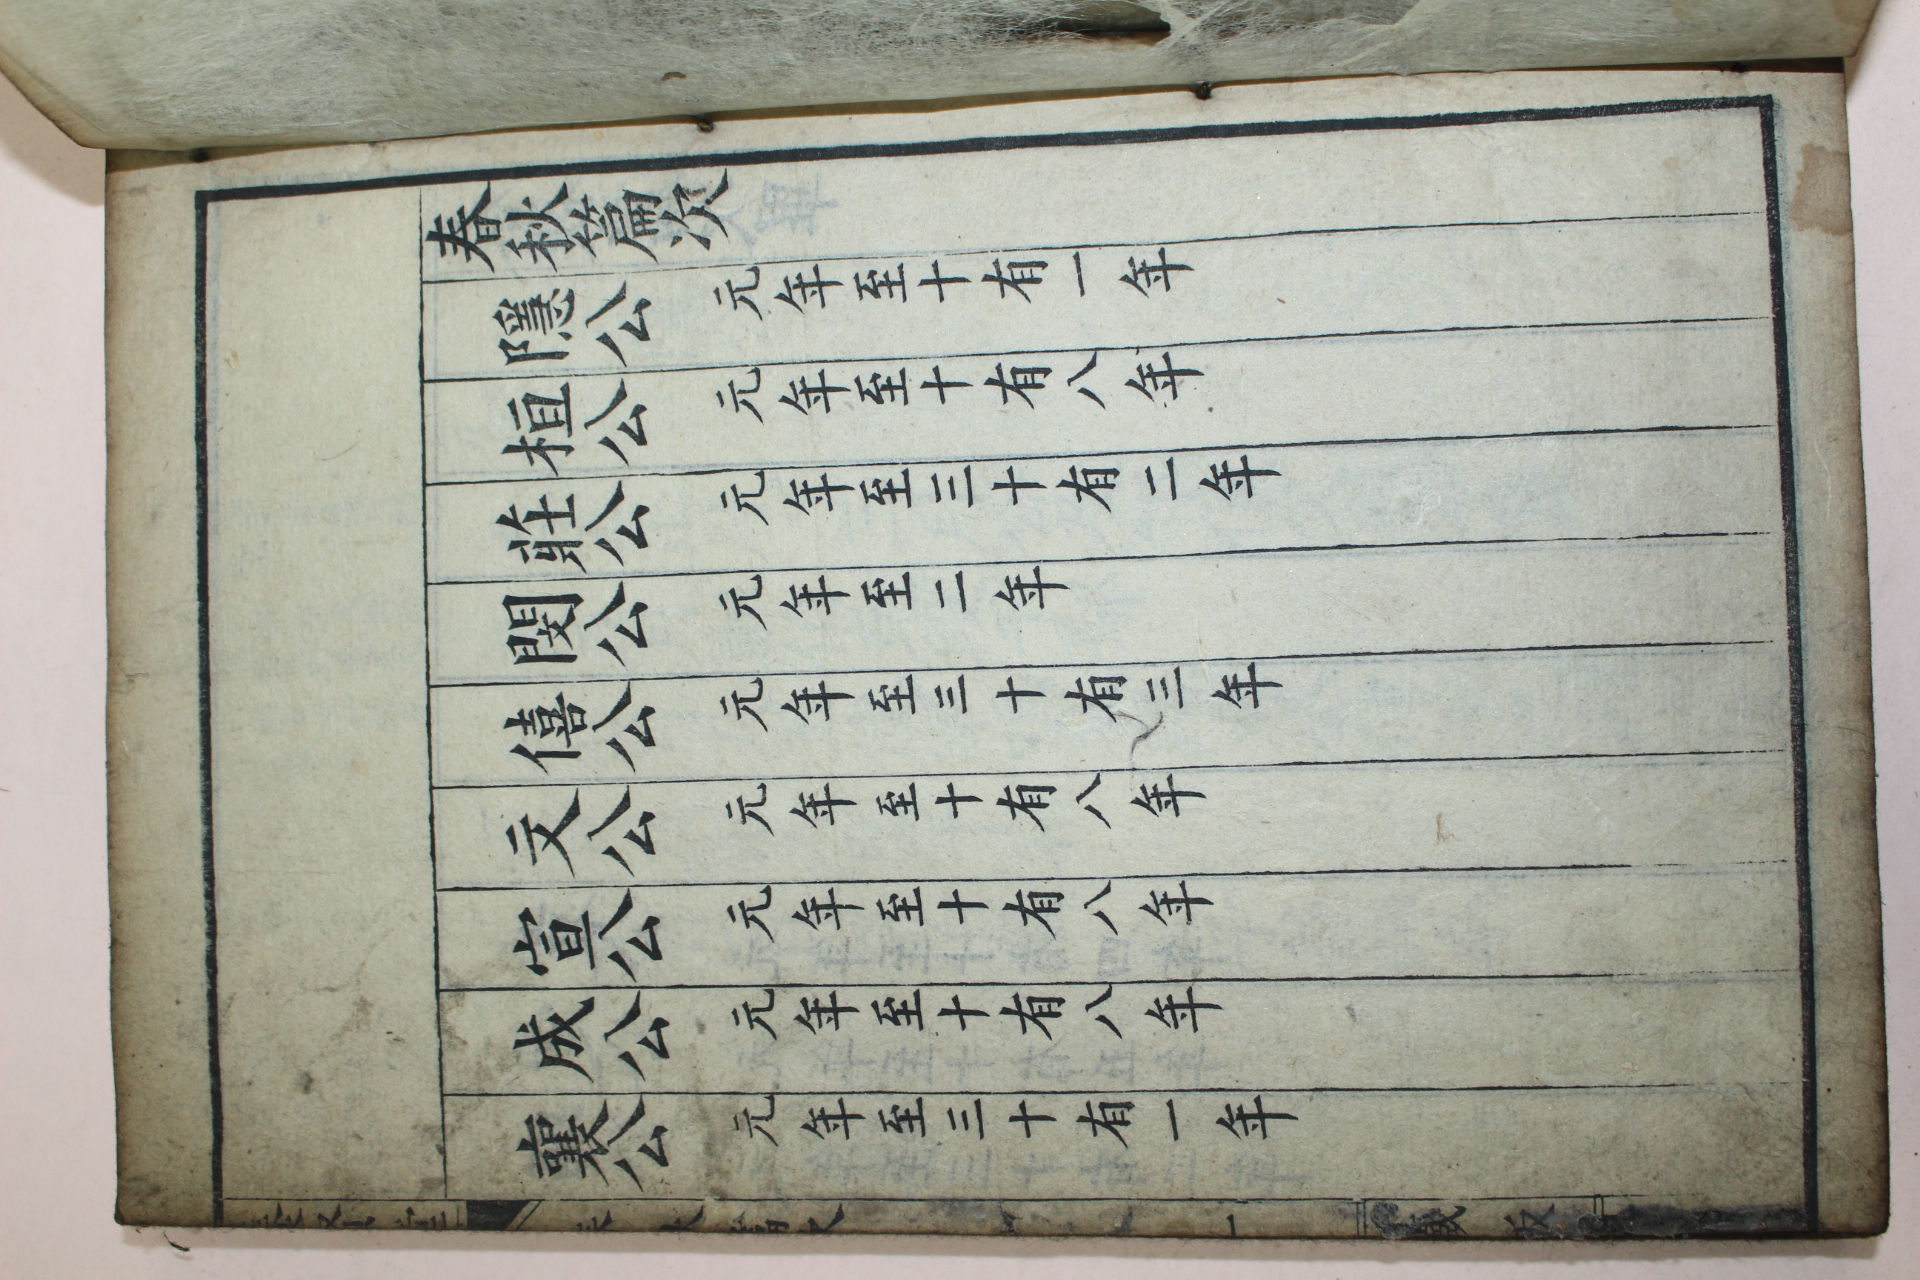 春秋篇次
隱公 元年至十有一年
桓公 元年至十有八年
莊公 元年至三十有二年
閔公 元年至二年
僖公 元年至三十有三年
文公 元年至十有八年
宣公 元年至十有八年
成公 元年至十有八年
襄公 元年至三十有一年